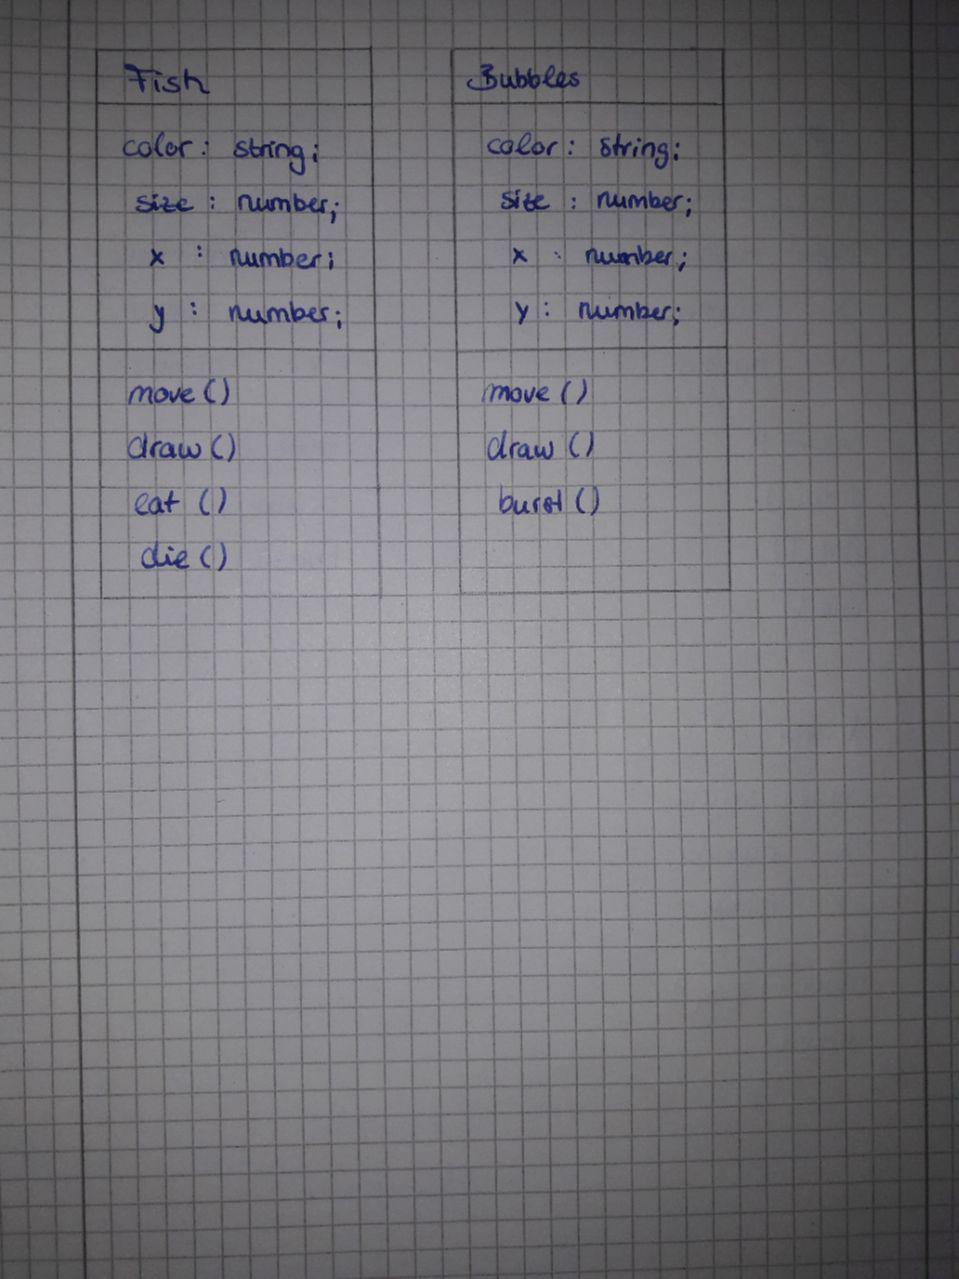 Fish
color: string;
size: number;
x : number;
y : number;
move ()
draw ()
eat ()
die ()
Bubbles
color: string;
size : number;
x : number;
y : number;
move ()
draw ()
burst ()